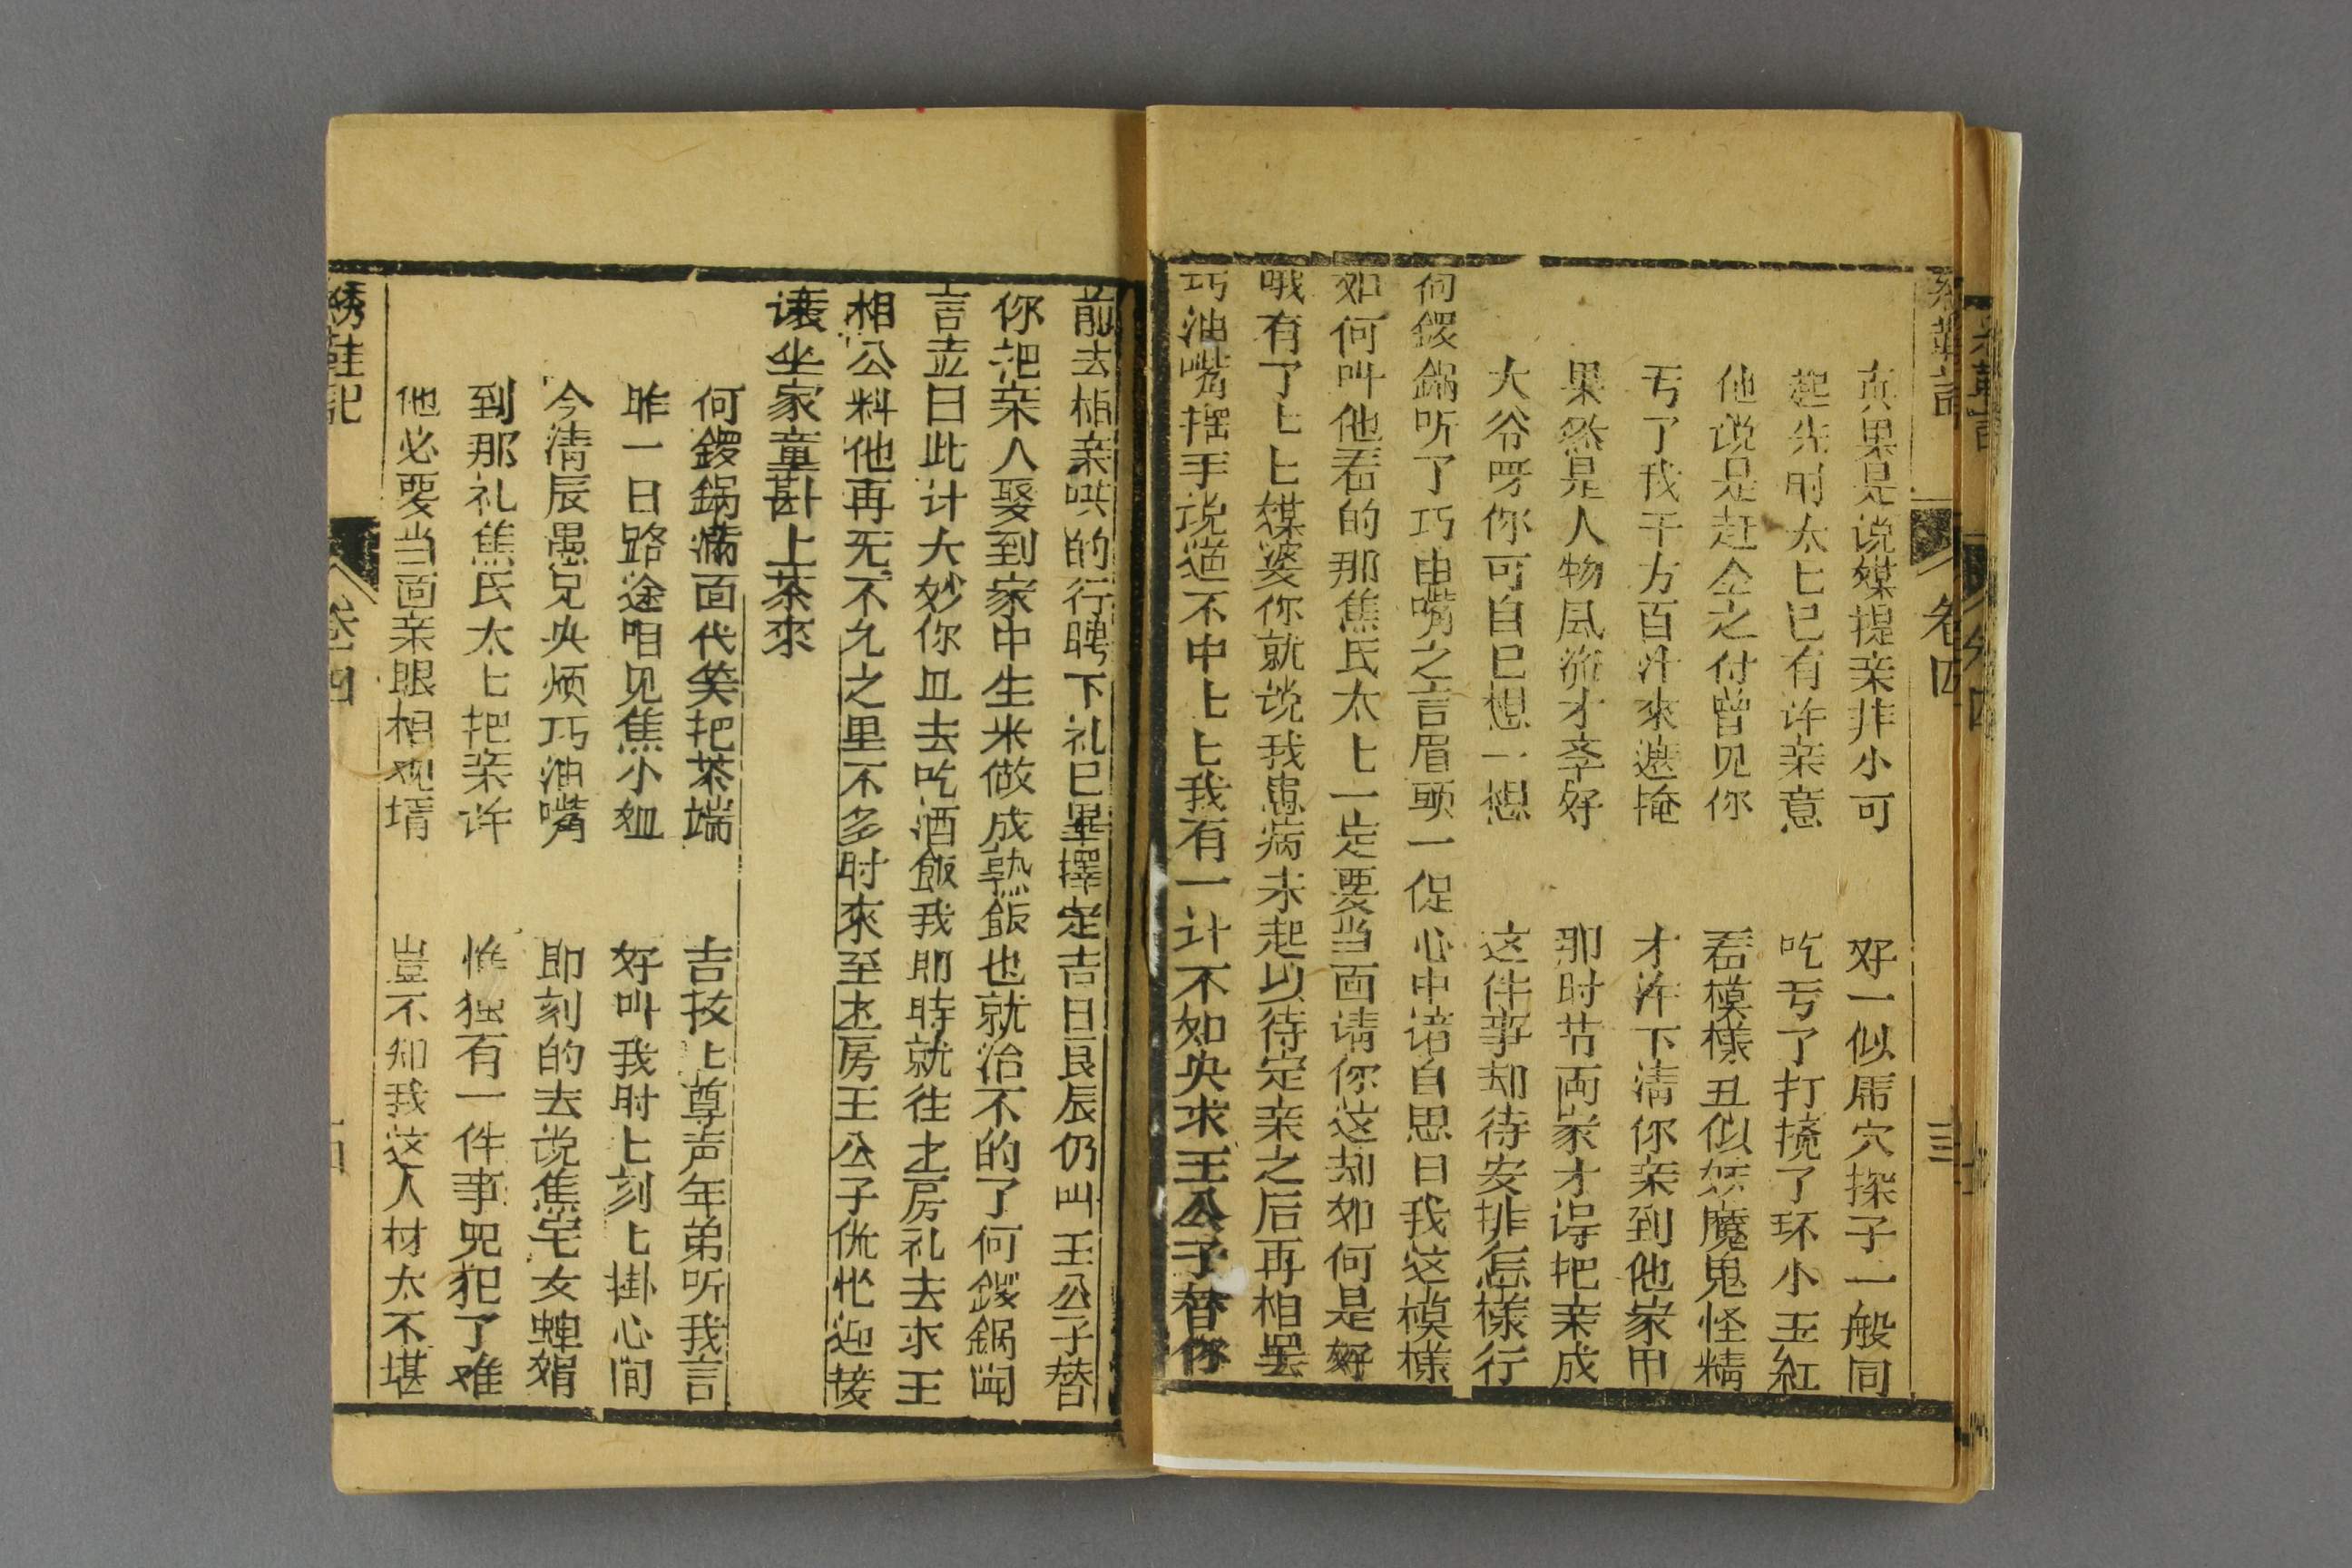 真果是说媒提亲非小可 好一似虎穴探子一般同
起先时太匕已有许亲意 吃亏了打搅了环小玉紅
他说是赶仝之付曾见你 看模様丑似妖魔鬼怪精
亏了我千方百汁來遮掩 才许下淸你亲到他家中
果然是人物凬流才孪好 那时节両家才得把亲成
大爷呀你可自已想一想 这件事却待安排怎様行
何鍐鍋听了巧由嘴之言眉頭一促心中诸自思曰我这模様
如何叫他看的那焦氏太匕一定要当面请你这却如何是好
哦有了匕匕媒婆你就说我患病未起以待定亲之后再相罢
巧油嘴揺手说道不中匕匕我有一计不如央求王公子替你
前去相亲哄的行聘下礼已畢擇定吉日良辰仍叫王公子替
你把亲人娶到家中生米做成熟飯也就治不的了何鍐鍋闻
言壴曰此计大妙你且去吃酒飯我即時就往土房礼去求王
相公料他再无不允之里不多时來至土房王公子慌忙迎接
讓坐家童斟上茶來
何鍐鍋满面代笑把茶端 吉按匕尊声年弟听我言
昨一日路途咱见焦小姐 好叫我时匕刻匕掛心间
今淸辰愚兄央烦巧油嘴 即刻的去说焦宅女蟬娟
到那礼焦氏太匕把亲许 惟独有一件事児犯了难
他必要当面亲眼相观壻 豈不知我这人材太不堪
綉鞋記 卷四